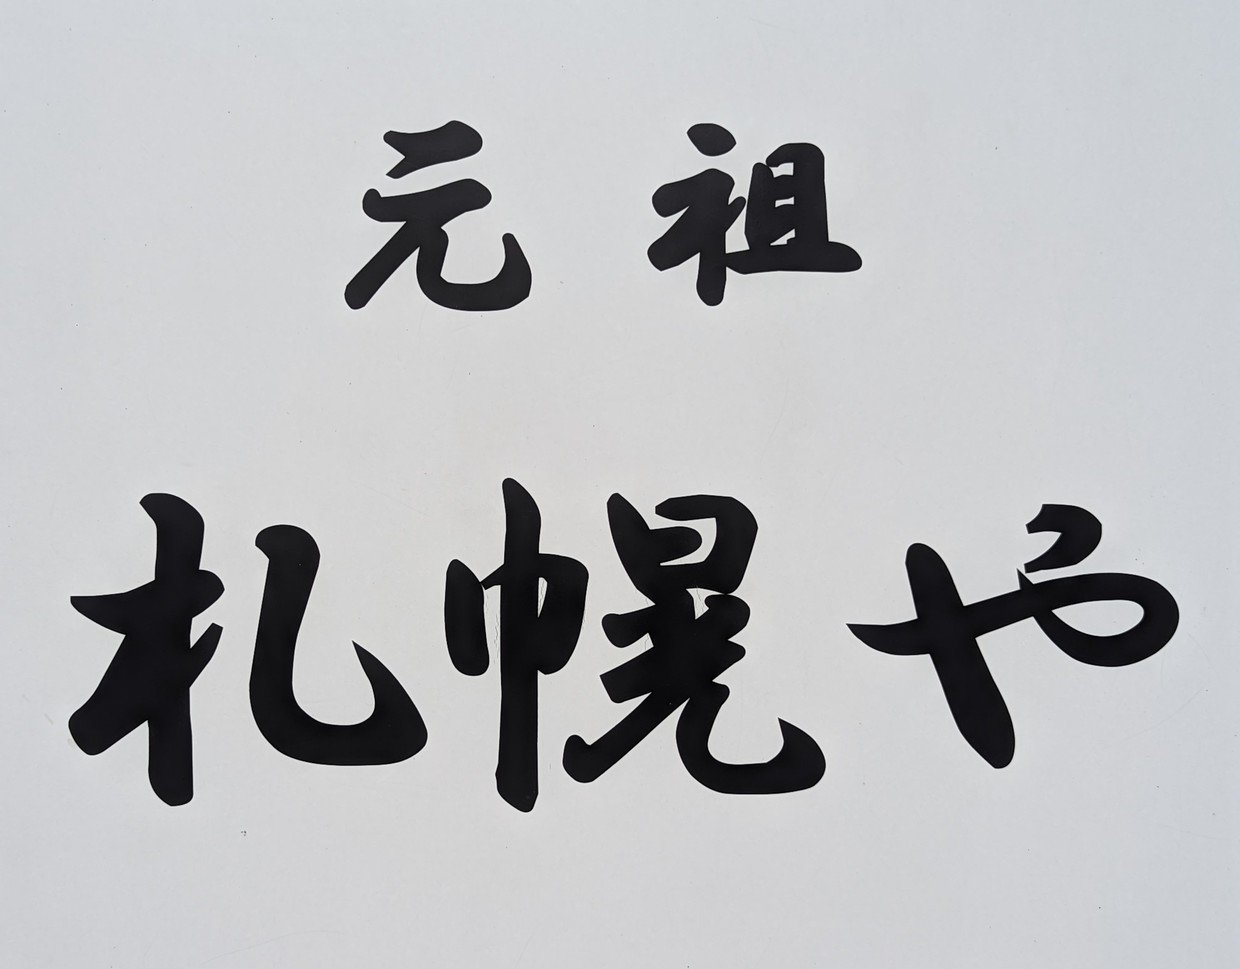 元祖
札幌や